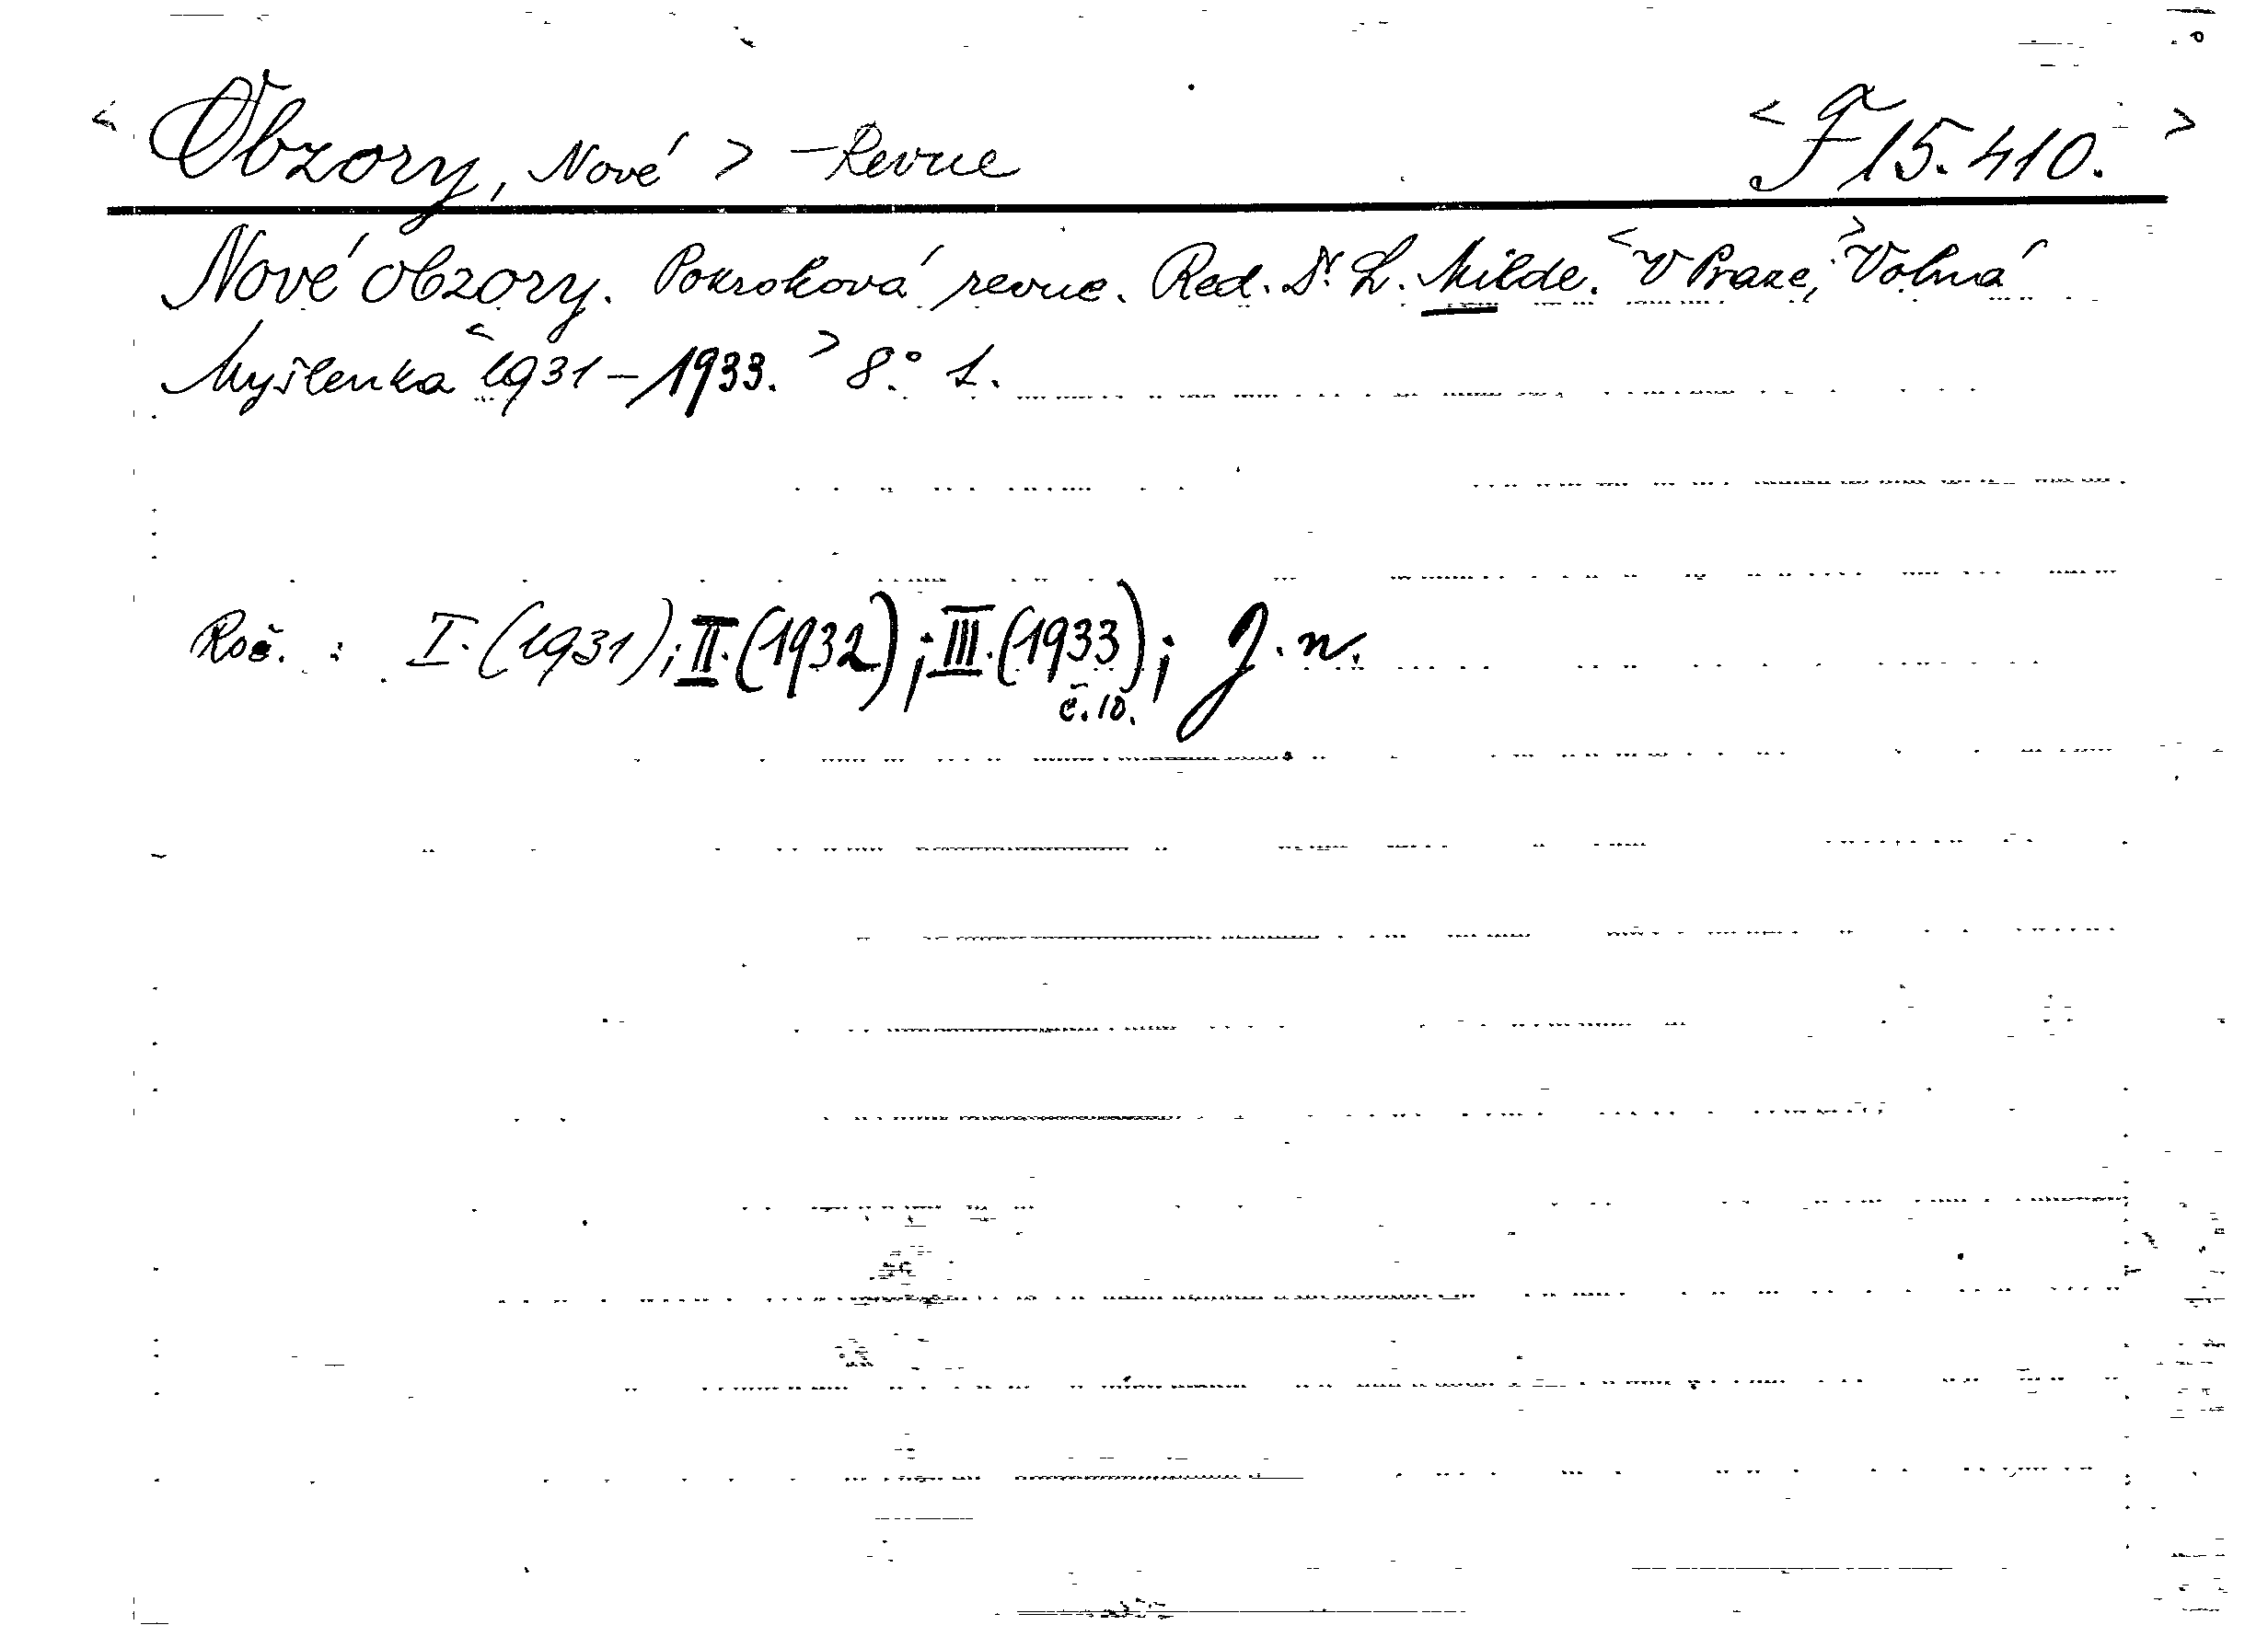 < Obzory, Nové > – Revue < F 15.410. >
Nové obzory. Pokroková revue. Red. Dr. L. Milde. < V Praze, > Volná
Myšlenka < 1931 – 1933. > 8.° 1.
Roč. : I. (1931); II. (1932); III. (1933); J. n.
č. 10.